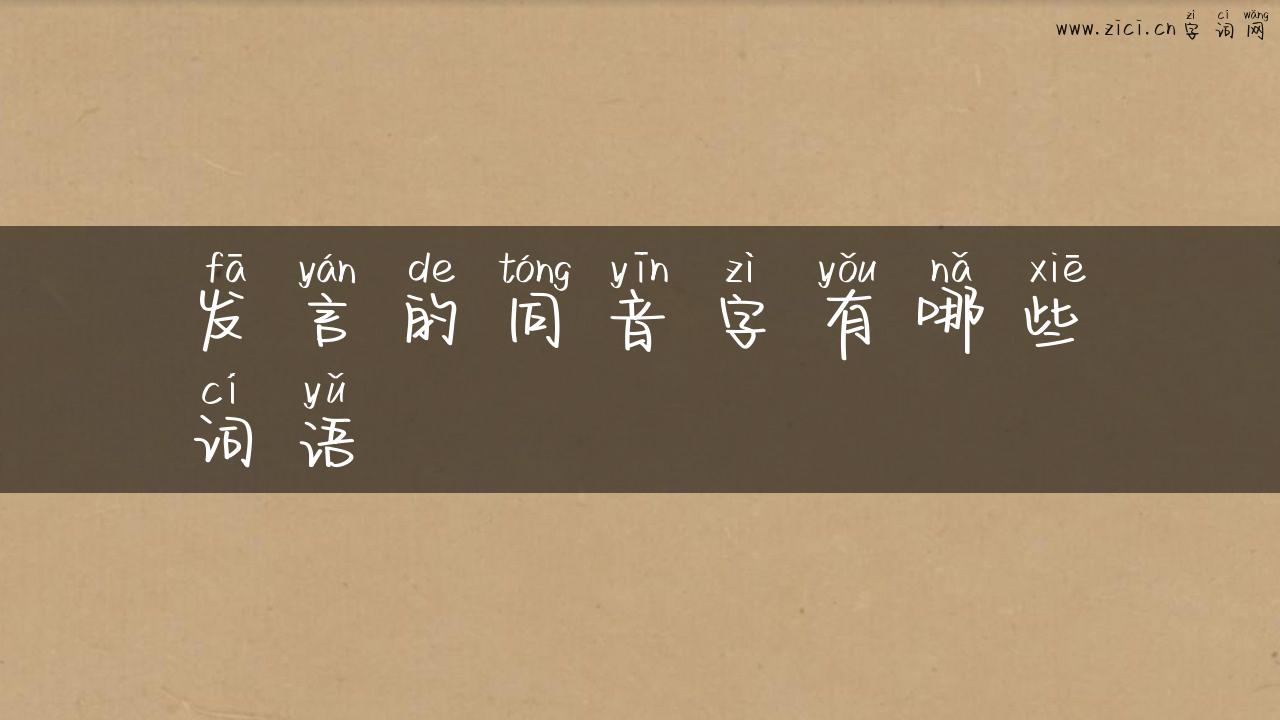 zì cí wǎng
www.zici.cn 字词网
fā yán de tóng yīn zì yǒu nǎ xiē
发言的同音字有哪些
cí yǔ
词语